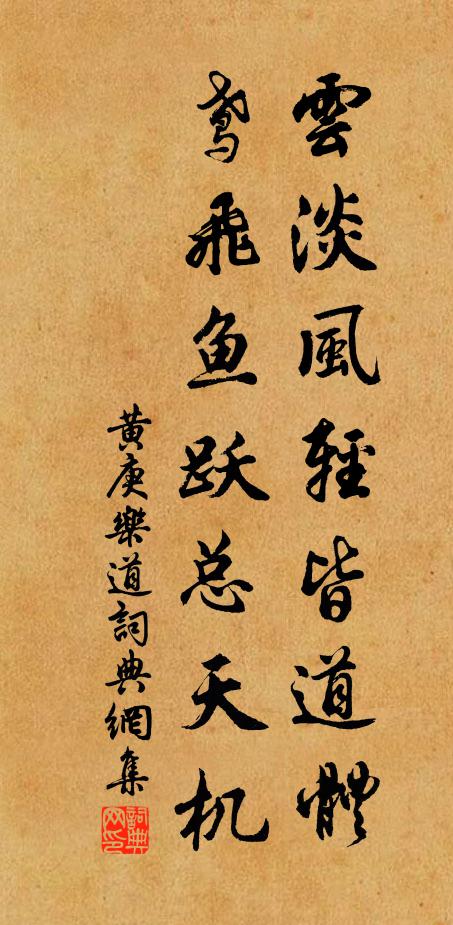 雲淡風輕皆道體
鸢飛鱼跃总天机
黄庚樂道詞典網集
詞典网印